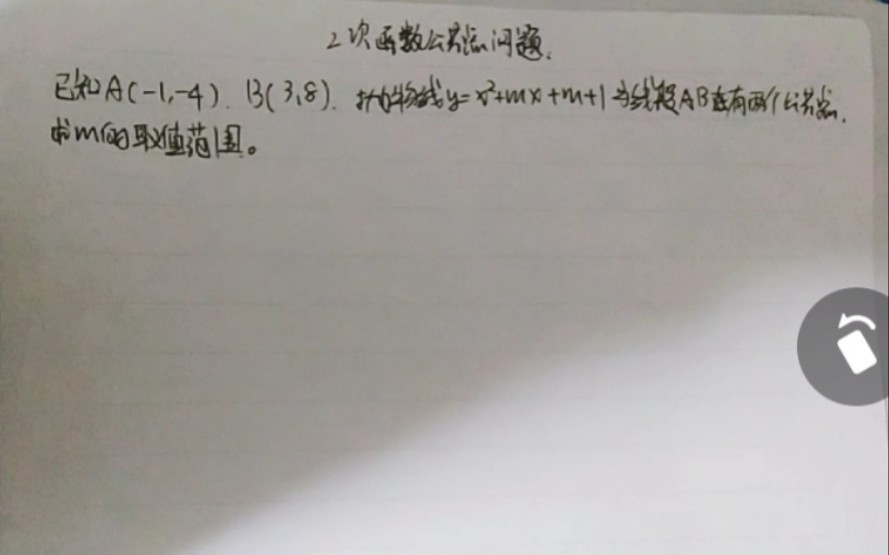 2次函数公共点问题.
已知A(-1,-4).B(3,8).抛物线y=x²+mx+m+1与线段AB有两个公共点.
求m的取值范围。